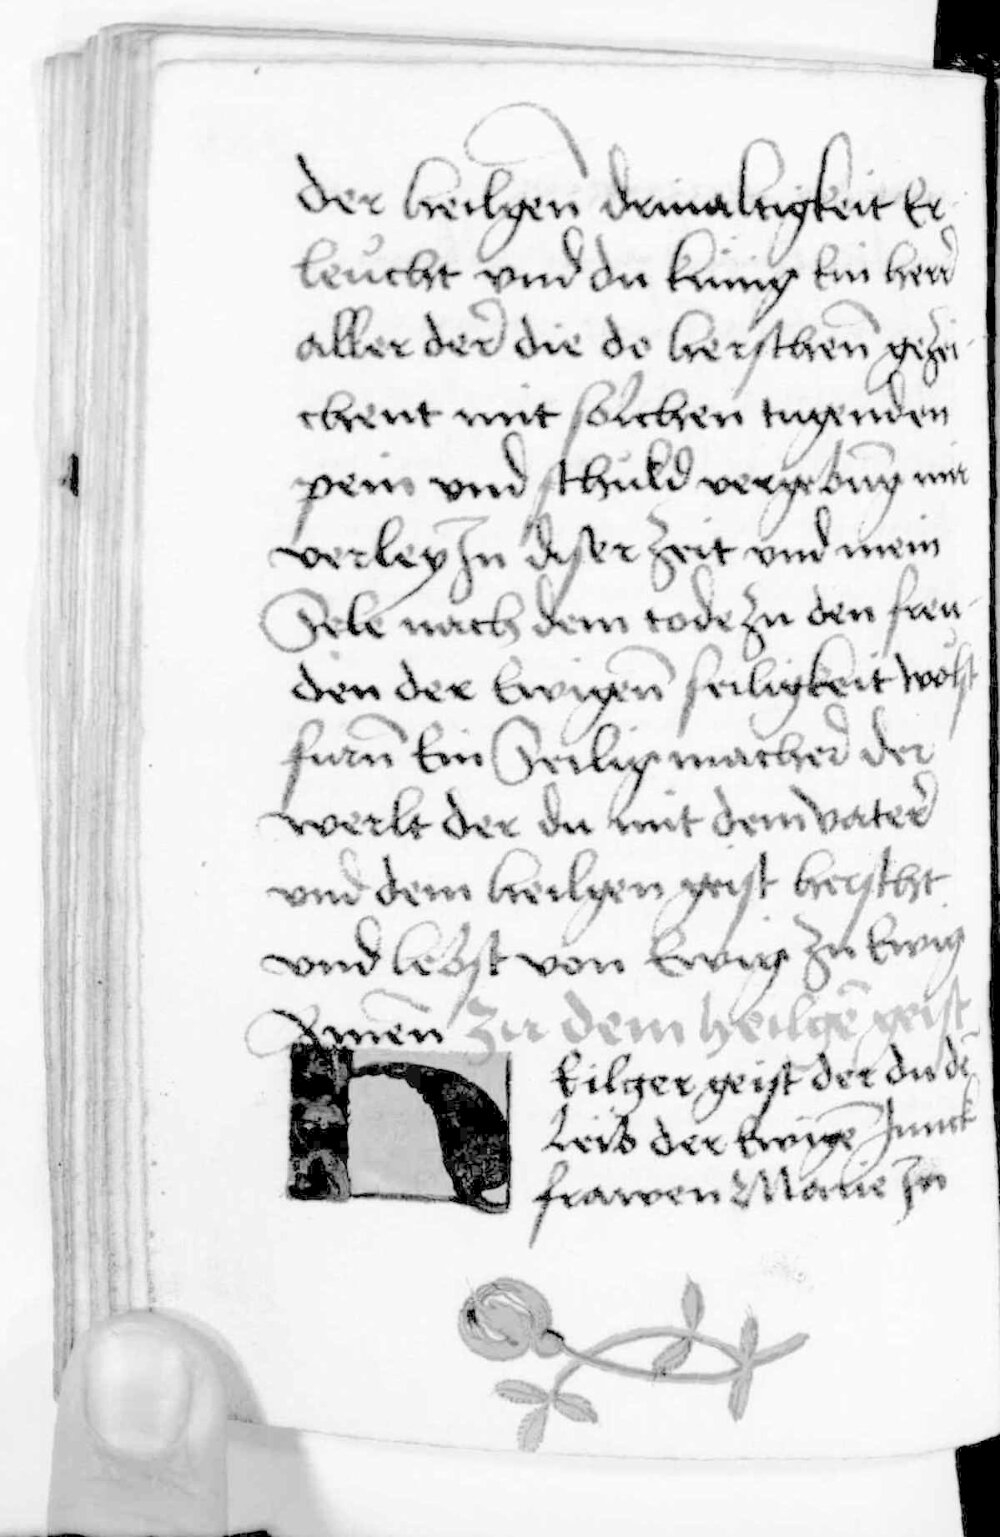 der heilgen driualtigkeit Er-
leucht vnd du künig Ein herr
aller der die do herschen gezei-
chent mit solchen tugenden
pein vnd schuld vergebung mir
verley In diser Zeit vnd mein
Sele nach dem tode zu den freu-
den der Ewigen seiligkeit wölst
furn Ein Seiligmacher der
werlt der du mit dem vater
vnd dem heilgen geist herscht
vnd lebst von Ewig zu Ewig
Amen Zu dem heilgē geist
HEilger geist der du dē
leib der Ewigē Junck
frawen Marie In